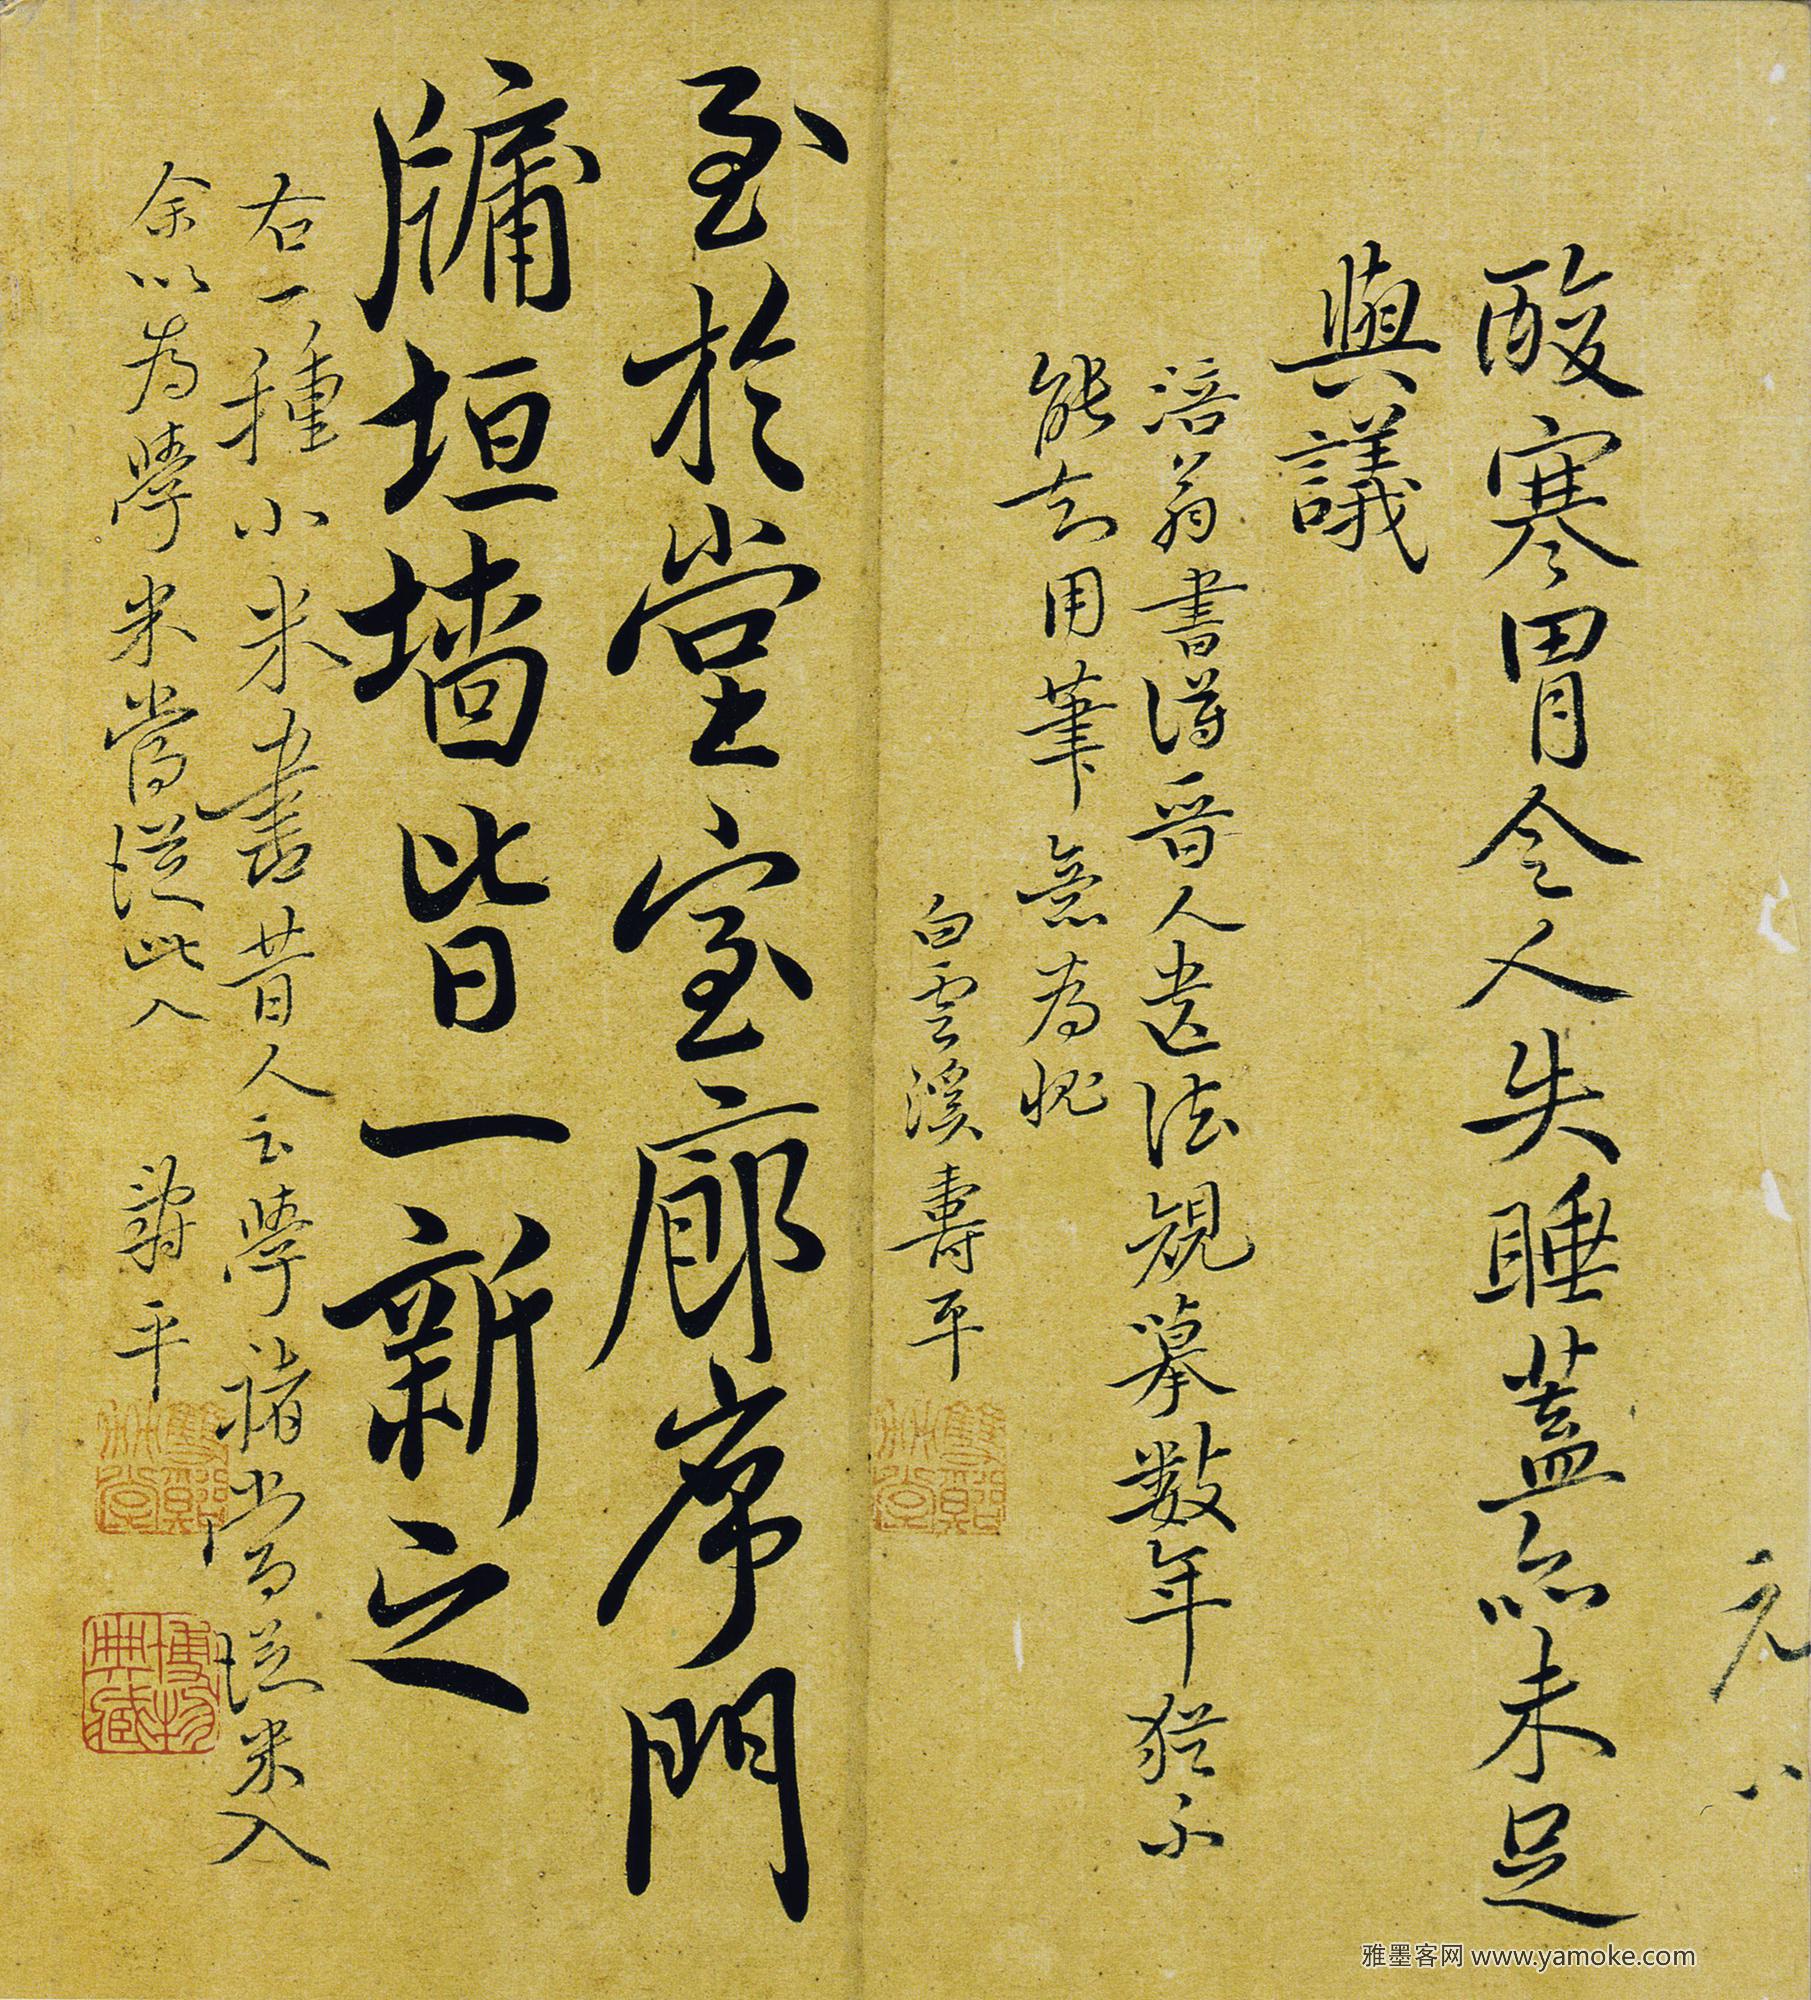 酸寒胃令人失睡蓋亦未足
與議
涪翁書得晉人遺法規摹数年猶不
能去用筆意為愧
白雲溪壽平
至於堂室廊序門
牖垣墙皆一新之
右一種小米書昔人云學褚當從米入
余以為學米當從此入
壽平
博物典藏
雅墨客网 www.yamoke.com